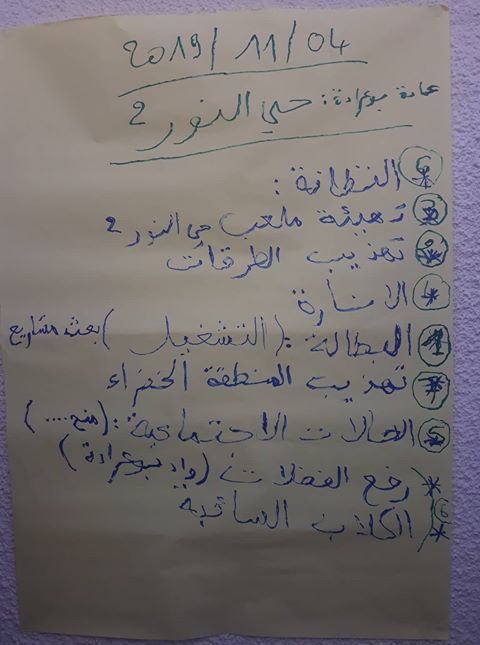 2019/11/04
عمادة بوعرادة: حي النور 2
6 * النظافة:
3 * تهيئة ملعب حي النور 2
2 * تهذيب الطرقات
4 * الانارة
1 * البطالة: (التشغيل) بعث مشاريع
7 * تهذيب المنطقة الخضراء
5 * الحالات الاجتماعية: (منح....)
* رفع الفضلات (واد بوعرادة)
6 * الكلاب السائبة